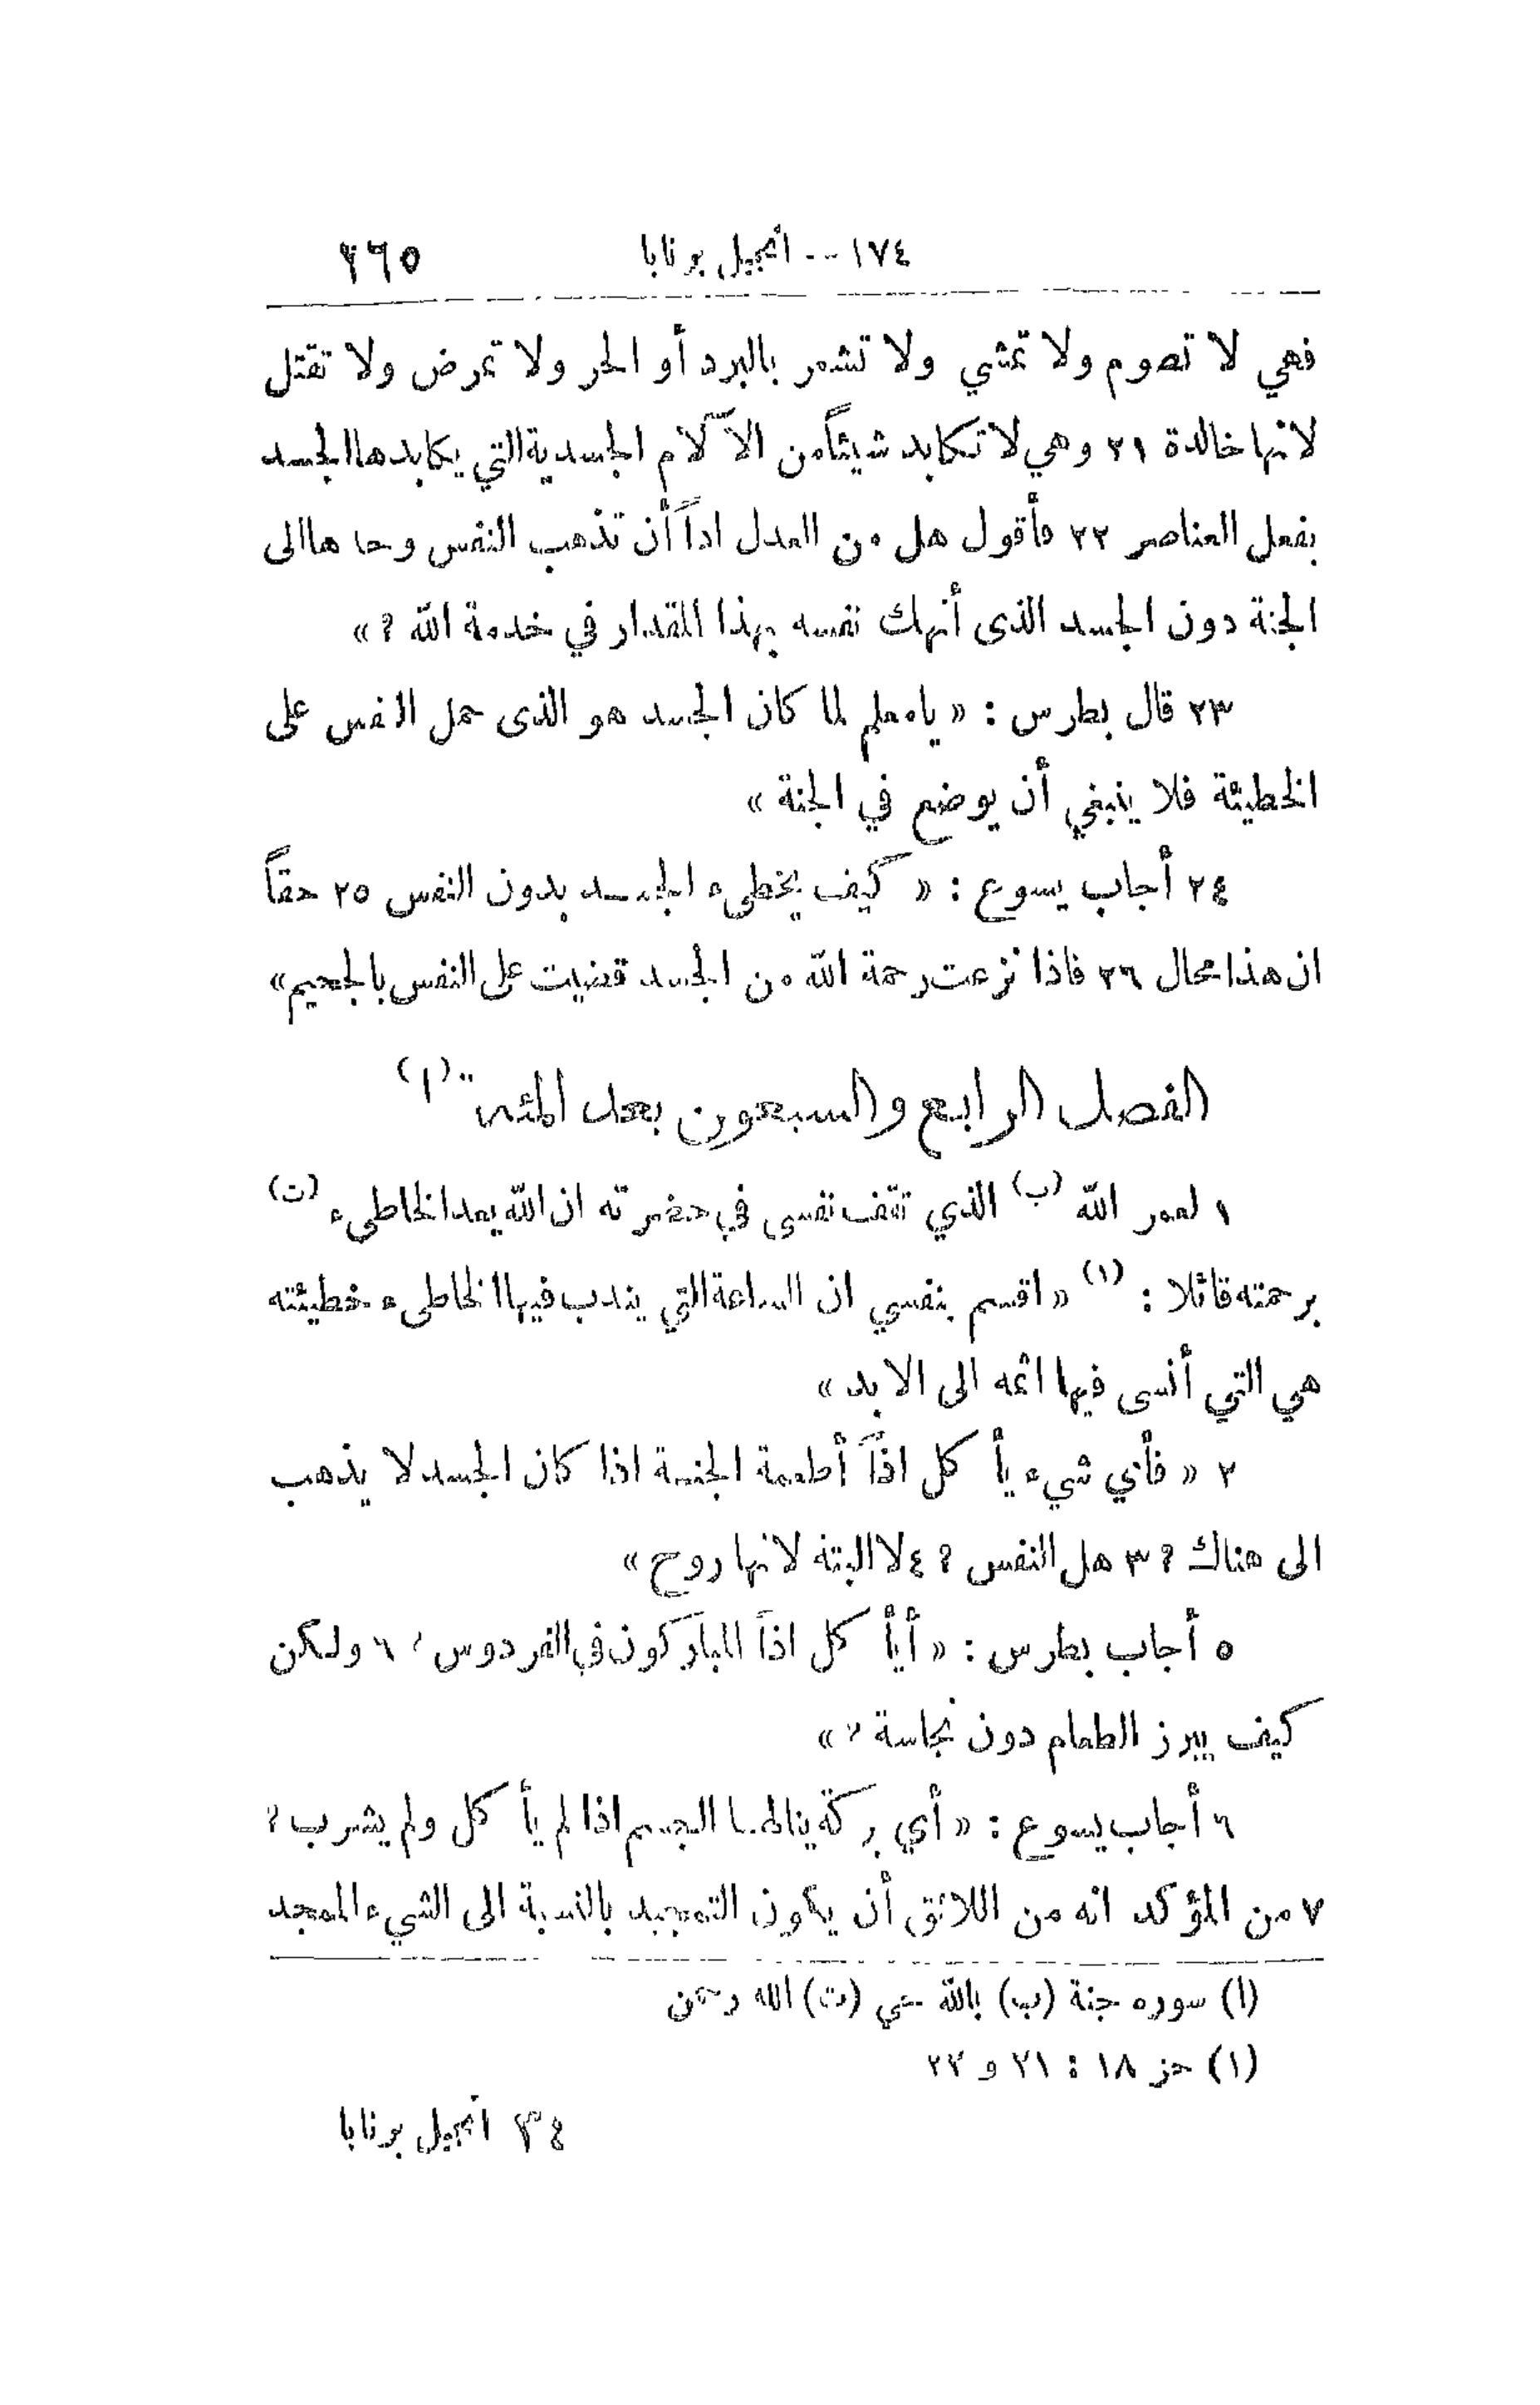 ١٧٤ -- انجيل برنابا ٢٦٥
فهي لا تصوم ولا تمشي ولا تشعر بالبرد أو الحر ولا تمرض ولا تقتل
لانها خالدة ٢١ وهي لا تكابد شيئاً من الآلام الجسدية التي يكابدها الجسد
بفعل العناصر ٢٢ فأقول هل من العدل اذاً أن تذهب النفس وحدها الى
الجنة دون الجسد الذى أنهك نفسه بهذا المقدار في خدمة الله ؟ »
٢٣ قال بطرس : « يا معلم لما كان الجسد هو الذى حمل النفس على
الخطيئة فلا ينبغي أن يوضع في الجنة »
٢٤ أجاب يسوع : « كيف يخطىء الجسد بدون النفس ٢٥ حقاً
ان هذا محال ٢٦ فاذا نزعت رحمة الله من الجسد قضيت على النفس بالجحيم »
الفصل الرابع والسبعون بعد المئة (ا)
١ لعمر الله (ب) الذي تقف نفسى في حضرته ان الله يعد الخاطىء (ت)
برحمته قائلا : (١) « اقسم بنفسي ان الساعة التي يندب فيها الخاطىء خطيئته
هي التي أنسى فيها اثمه الى الابد »
٢ « فأي شيء يأكل اذاً أطعمة الجنة اذا كان الجسد لا يذهب
الى هناك ؟ ٣ هل النفس ؟ ٤ لا البتة لانها روح »
٥ أجاب بطرس : « أيأكل اذاً المباركون في الفردوس ؟ ٦ ولكن
كيف يبرز الطعام دون نجاسة ؟ »
٦ أجاب يسوع : « أي بركة ينالها الجسم اذا لم يأكل ولم يشرب ؟
٧ من المؤكد انه من اللائق أن يكون التمجيد بالنسبة الى الشيء الممجد
(ا) سوره جنة (ب) بالله حي (ت) الله رحمن
(١) حز ١٨ : ٢١ و ٢٢
٣٤ انجيل برنابا